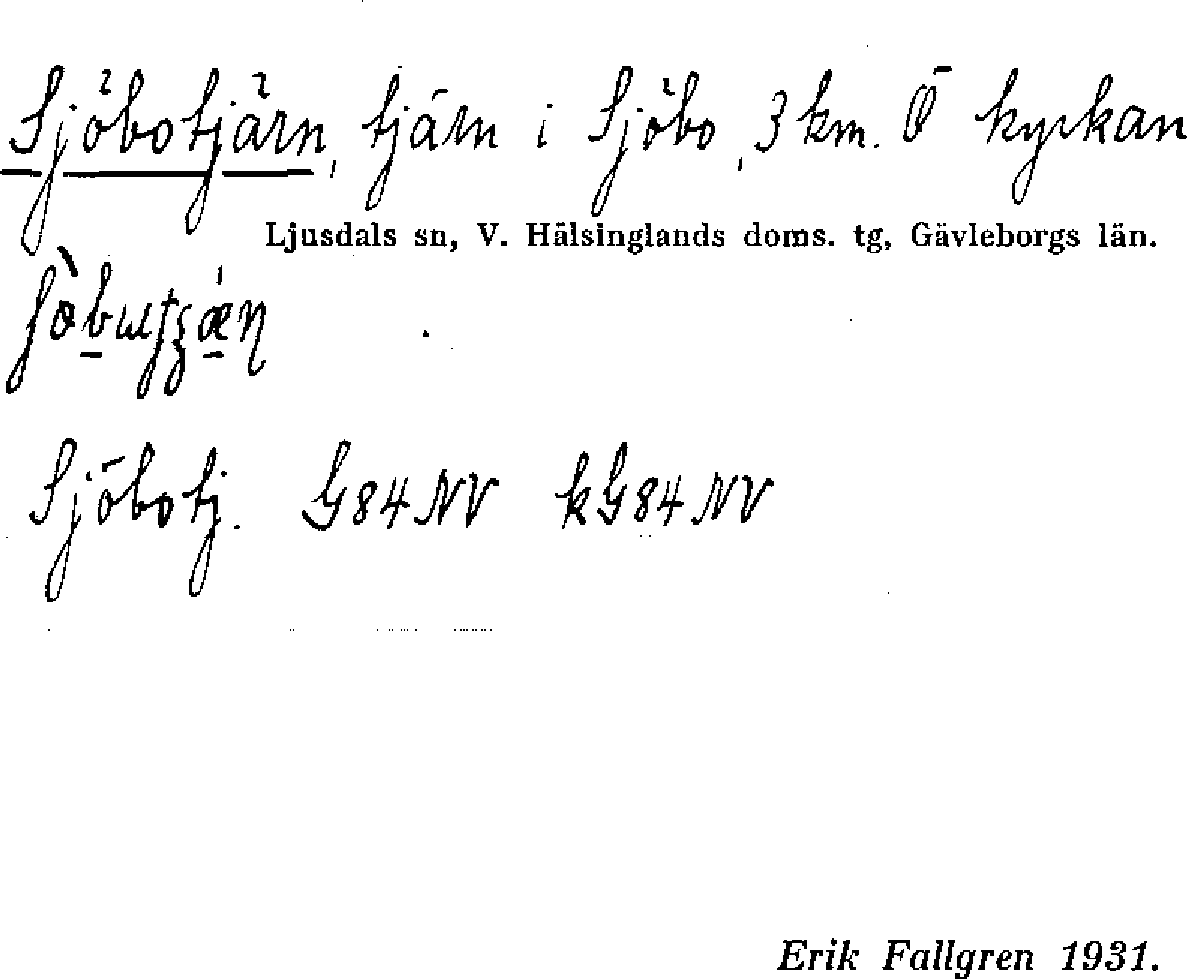 Sjöbotjärn, tjärn i Sjöbo, 3 km. Ö kyrkan
Ljusdals sn, V. Hälsinglands doms. tg, Gävleborgs län.
Sjöbotj. G84NV kG84NV
Erik Fallgren 1931.